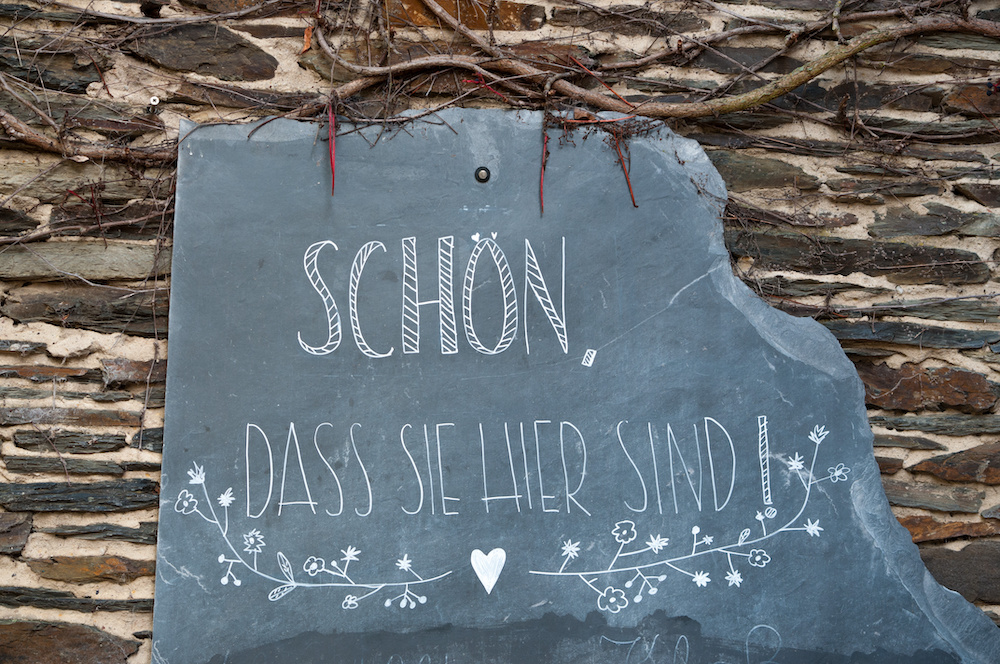 SCHÖN,
DASS SIE HIER SIND!